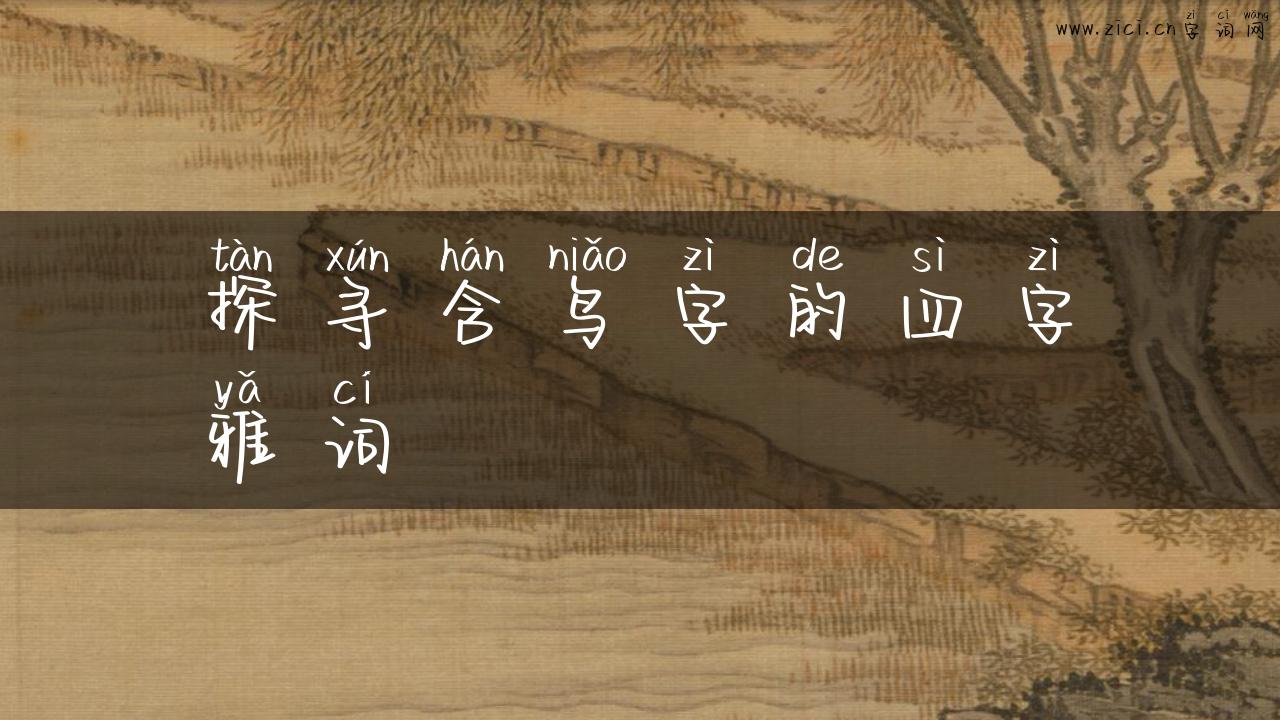 zì cí wǎng
www.zici.cn字词网
tàn xún hán niǎo zì de sì zì
探寻含鸟字的四字
yǎ cí
雅词